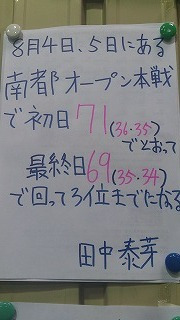 8月4日、5日にある
南都オープン本戦
で初日71(36・35)
でとおって
最終日69(35・34)
で回って3位までになる
田中泰芽